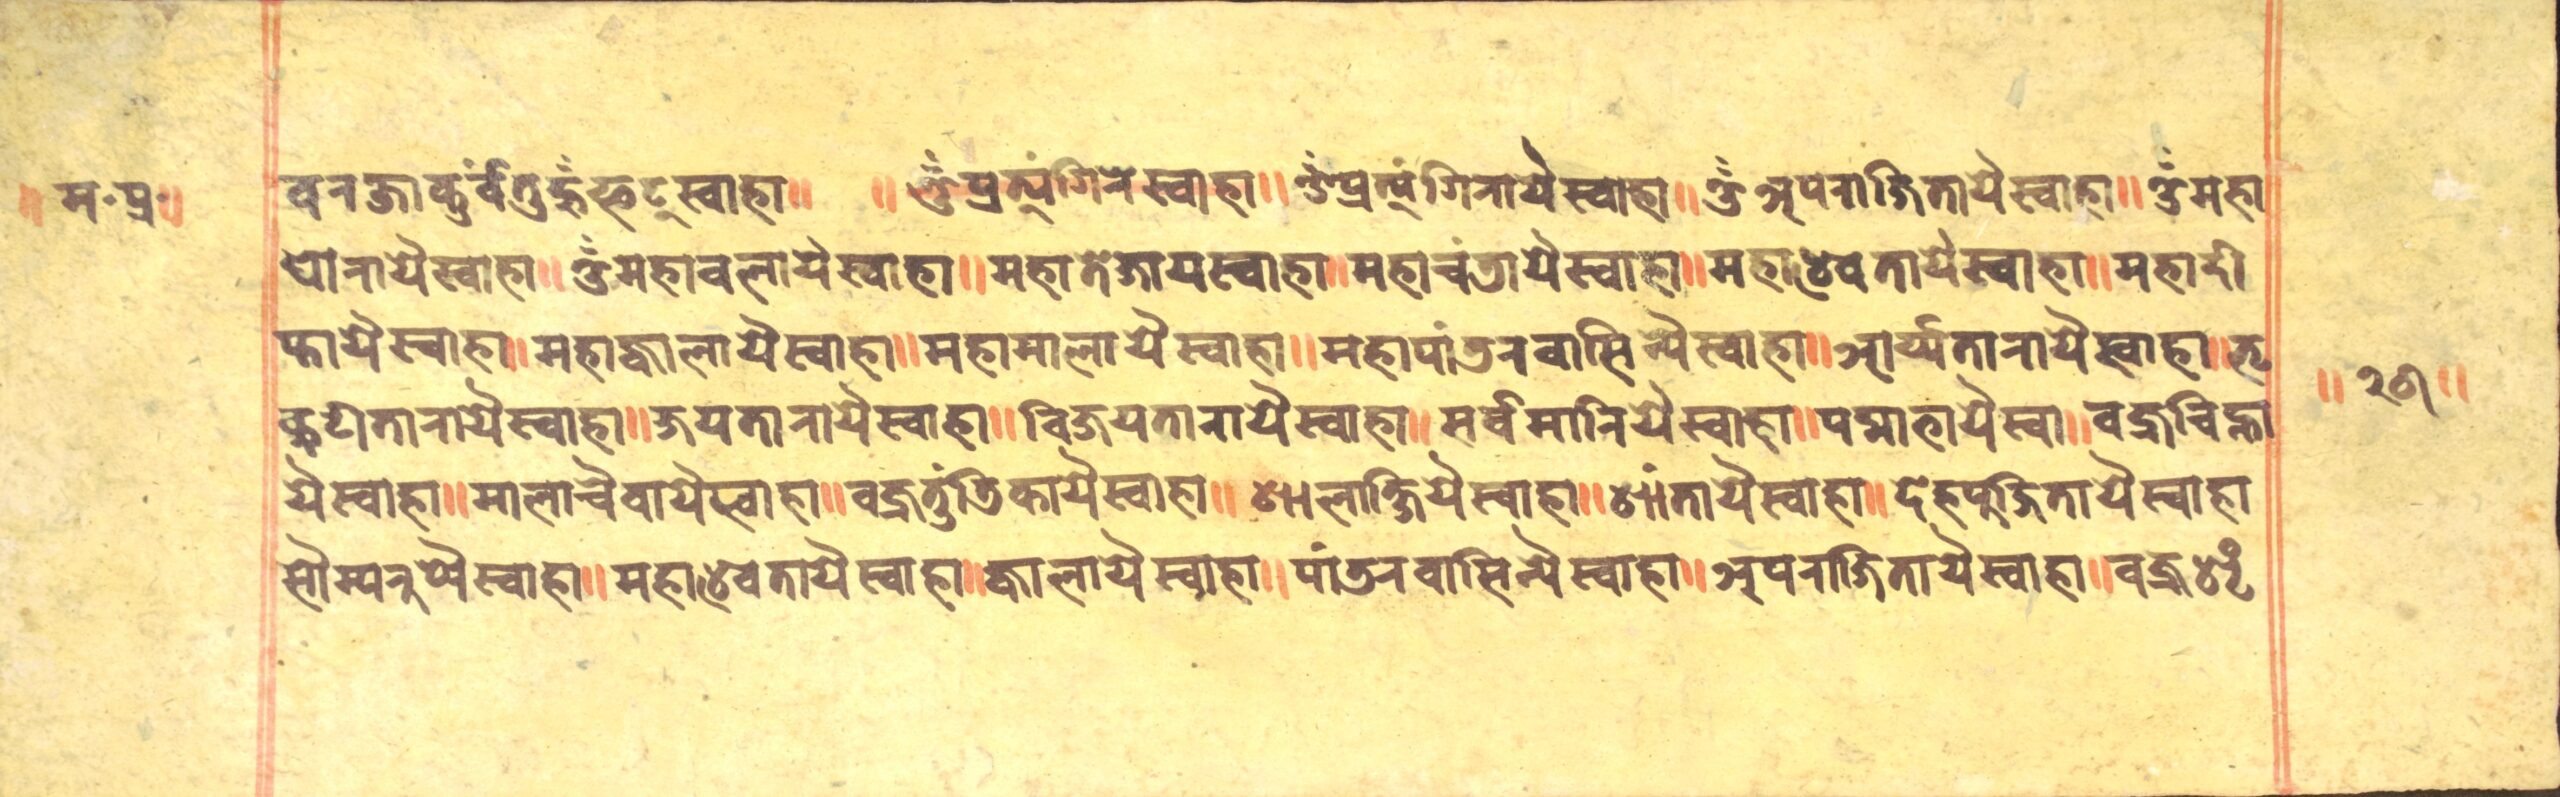 ॥ म॰प्र॰॥
वनजाक्तुंर्वतुहुंफट्स्वाहा॥ ॥ ॐप्रत्यंगिरेस्वाहा॥ ॐप्रत्यंगिरायैस्वाहा॥ ॐअपराजितायैस्वाहा॥ ॐमहा
घोरायैस्वाहा॥ ॐमहावलायैस्वाहा॥ महातेजायस्वाहा॥ महाचंडायैस्वाहा॥ महाश्वेवतायैस्वाहा॥ महादी
प्तायैस्वाहा॥ महाज्वालायैस्वाहा॥ महामालायैस्वाहा॥ महापांडरवासिन्यैस्वाहा॥ आर्य्यतारायैस्वाहा॥ भृ
कुटीतारायैस्वाहा॥ जयतारायैस्वाहा॥ विजयतारायैस्वाहा॥ सर्वमारियैस्वाहा॥ पद्माभायैस्वा॥ वज्रचिह्ना
यैस्वाहा॥ मालाचैवायैस्वाहा॥ वज्रतुंडिकायैस्वाहा॥ शालाक्षियैस्वाहा॥ शांतायैस्वाहा॥ देहपुजितायैस्वाहा
सौम्यरुप्यैस्वाहा॥ महाश्वेवतायैस्वाहा॥ ज्वालायैस्वाहा॥ पांडरवासिन्यैस्वाहा॥ अपराजितायैस्वाहा॥ वज्रशृं